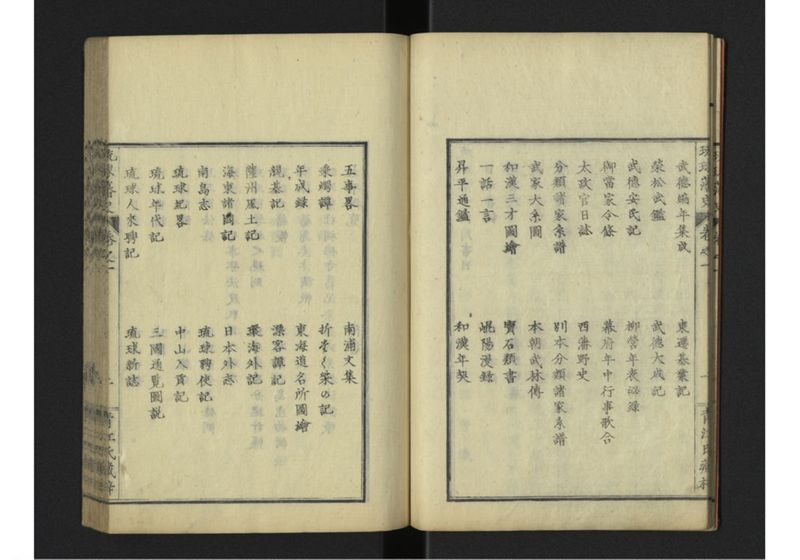 琉球藩史 卷之一
武德編年集成 東遷基業記
榮松武鑑 武德大成記
武德安民記 柳營年表泌録
御當家令條 幕府年中行事歌合
太政官日誌 西藩野史
分類諸家系譜 別本分類諸家系譜
武家大系圖 本朝武林傳
和漢三才圖繪 寶石類書
一話一言 崐陽漫録
昇平通鑑 和漢年契
五事畧 南浦文集
秉燭譚 折焚く柴の記
年成録 東海道名所圖繪
親基記 漂客譚記
薩州風土記 環海外記
海東諸國記 日本外志
南島志 琉球聘使記
琉球紀畧 中山入貢記
琉球年代記 三國通覧圖説
琉球人来聘記 琉球新誌
琉球藩史 卷之一